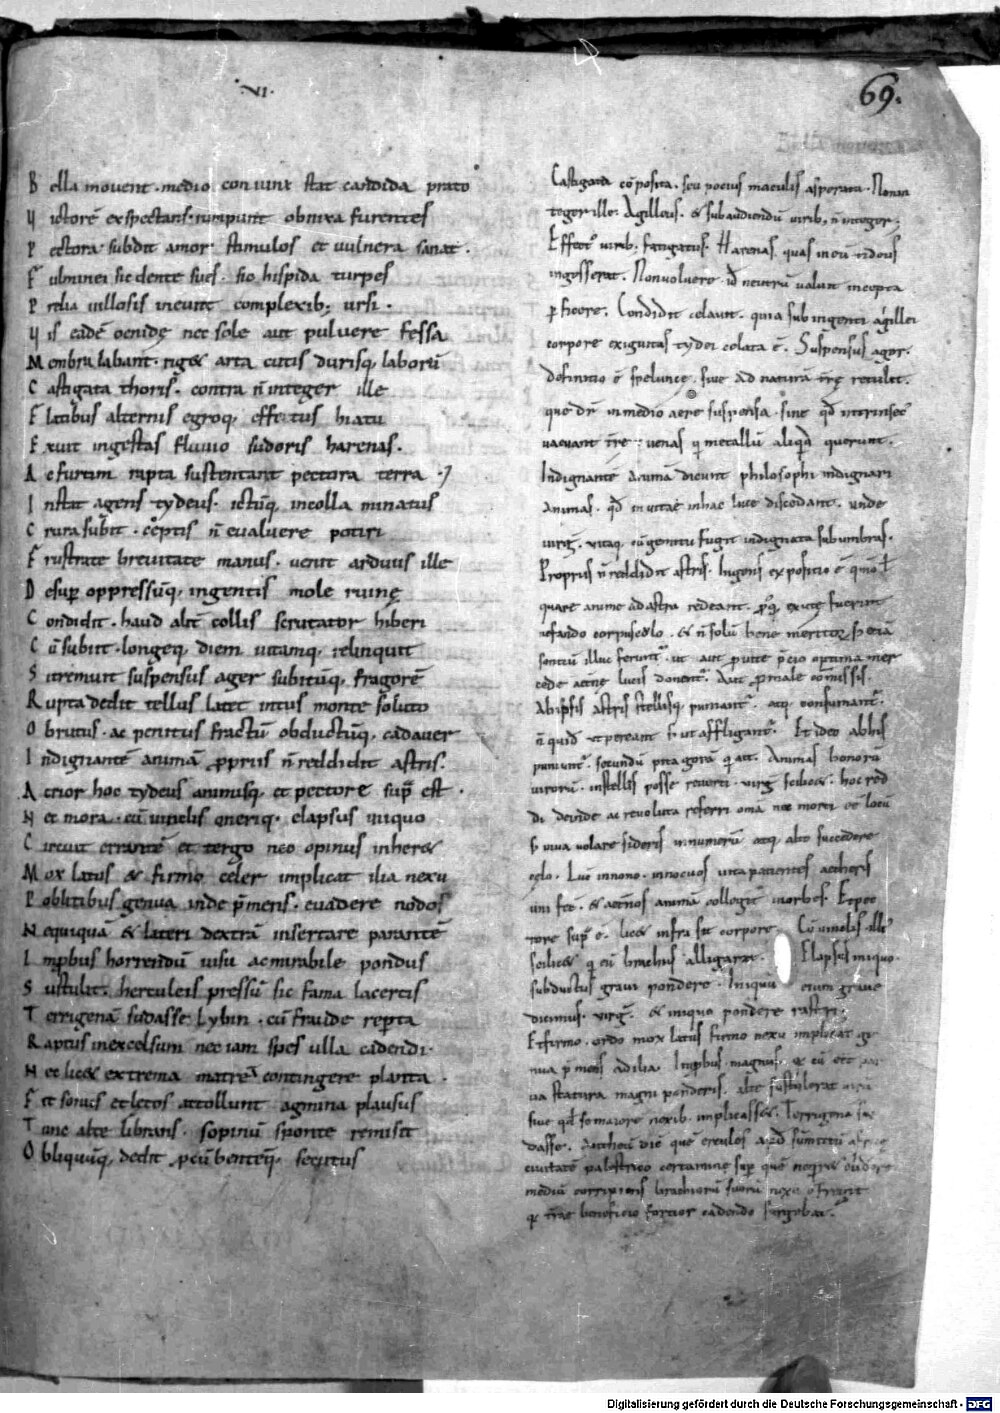 ·VI·
69.
B ella mouent · medio coniunx stat candida prato
V ictorē exspectans · rumpunt obnixa furentes
P ectora subdit amor stimulos et uulnera sanat ·
F ulminei sic dente sues · sic hispida turpes
P relia uillosis ineunt complexib; ursi ·
V is eadē oenidę nec sole aut pulvere fessa
M embra labant · riget arta cutis durisq, laborū
C astigata thoris · contra ñ integer ille
F latibus alternis egroq, effetus hiatu
E xuit ingestas fluuio sudoris harenas ·
A c furtim rapta sustentant pectora terra ·
I nstat agens tydeus · ictūq, in colla minatus
C rura subit · ceptis ñ eualuere potiri
F rustrate breuitate manus · uenit arduus ille
D esup oppressūq, ingentis mole ruinę
C ondidit · haud alit collis scrutator hiberi
C ū subiit · longeq, diem uitamq, relinquit
S i tremuit suspensus ager subitūq, fragorē
R upta dedit tellus latet intus monte soluto
O brutus · ac penitus fractū obductūq, cadauer
I ndignantē animā propriis ñ reddidit astris ·
A crior hoc tydeus animisq, et pectore sup est ·
N ec mora · cū uinclis oneriq, elapsus iniquo
C ircuit errantē et tergo nec opinus inheret
M ox latus et firmo celer implicat ilia nexu
P oblitibus genua inde p̄mens · euadere nodos
N equiquā & lateri dextrā insertare parantē
I mpbus horrendū uisu ac mirabile pondus
S ustulit · herculeis pressū sic fama lacertis
T errigenā sudasse lybin · cū fraude repta
R aptus in excelsum nec iam spes ulla cadendi ·
N ec licet extrema matrē contingere planta ·
F it sonus et letos attollunt agmina plausus
T unc alte librans · sopinū sponte remisit
O bliquūq, dedit pcūbentēq, secutus
Castigata cōposita · seu pocius maculis asperata · Non in
teger ille · Agilleus · & subaudiendū uirib, ñ integer ·
Effet' uirib, fatigatus · Harenas quas in eū tideus
ingesserat · Non ualuere · id neutrū ualuit incepta
pficere · Condidit celauit · quia sub ingenti agillei
corpore exiguitas tydei celata ē · Suspensus ager ·
definitio ē spelunce · siue ad naturā trę retulit ·
que dr̄ in medio aere suspensa · siue qd intrinsec'
uacuant tre uenas q metallū aliqd querunt ·
Indignantē animā dicunt philosophi indignari
Animas · qd inuitae in hac luce discedant · unde
uirg̅ · uitaq, cū gemitu fugit indignata sub umbras ·
Propriis ñ reddidit astris · Ingens expositio ē
quare anime ad astra redeant · exutę fuerint
nefando corpusculo · & ñ solū bene meritor
sontiū illuc ferunt · ut aut optima mer
cede lucis donent · Aut p male comissis ·
Ab ipsis astris stellisq, puniant · atq, consumant ·
ñ quid ut pereant s; ut affligant · Et ideo ab his
puniunt · secundū pitagorā q ait · Animas bonorū
uirorū · in stellis posse reuerti · uirg̅ scilicet · hoc redd
di deinde ac resoluta referri omā nec morti ee locū
s; uiua uolare sideris in numerū atq, alto succedere
cęlo · innocuos aetheris
& animā
tore sup ē · licet infra sit corpore · Cū uinclis ille
scilicet q eū brachiis alligarat · Elapsus iniquo ·
subductus graui pondere · Iniquū enim graue
dicimus · uirg̅ · & iniquo pondere rastri ·
Et firmo · ordo mox latus firmo nexu implicat ge
nua p̄mens ad ilia · Impbus magnus, & cū eet par
ua statura magni ponderis · alte sustulerat
siue qd femorare nexib, implicasset · Terrigena su
dasse · Antheū dic que ercules
ciuitatē palestrico certamine sup
mediū corripiens brachiorū suorū nexu
q trae beneficio fortior cadendo surgebat ·
Digitalisierung gefördert durch die Deutsche Forschungsgemeinschaft - DFG